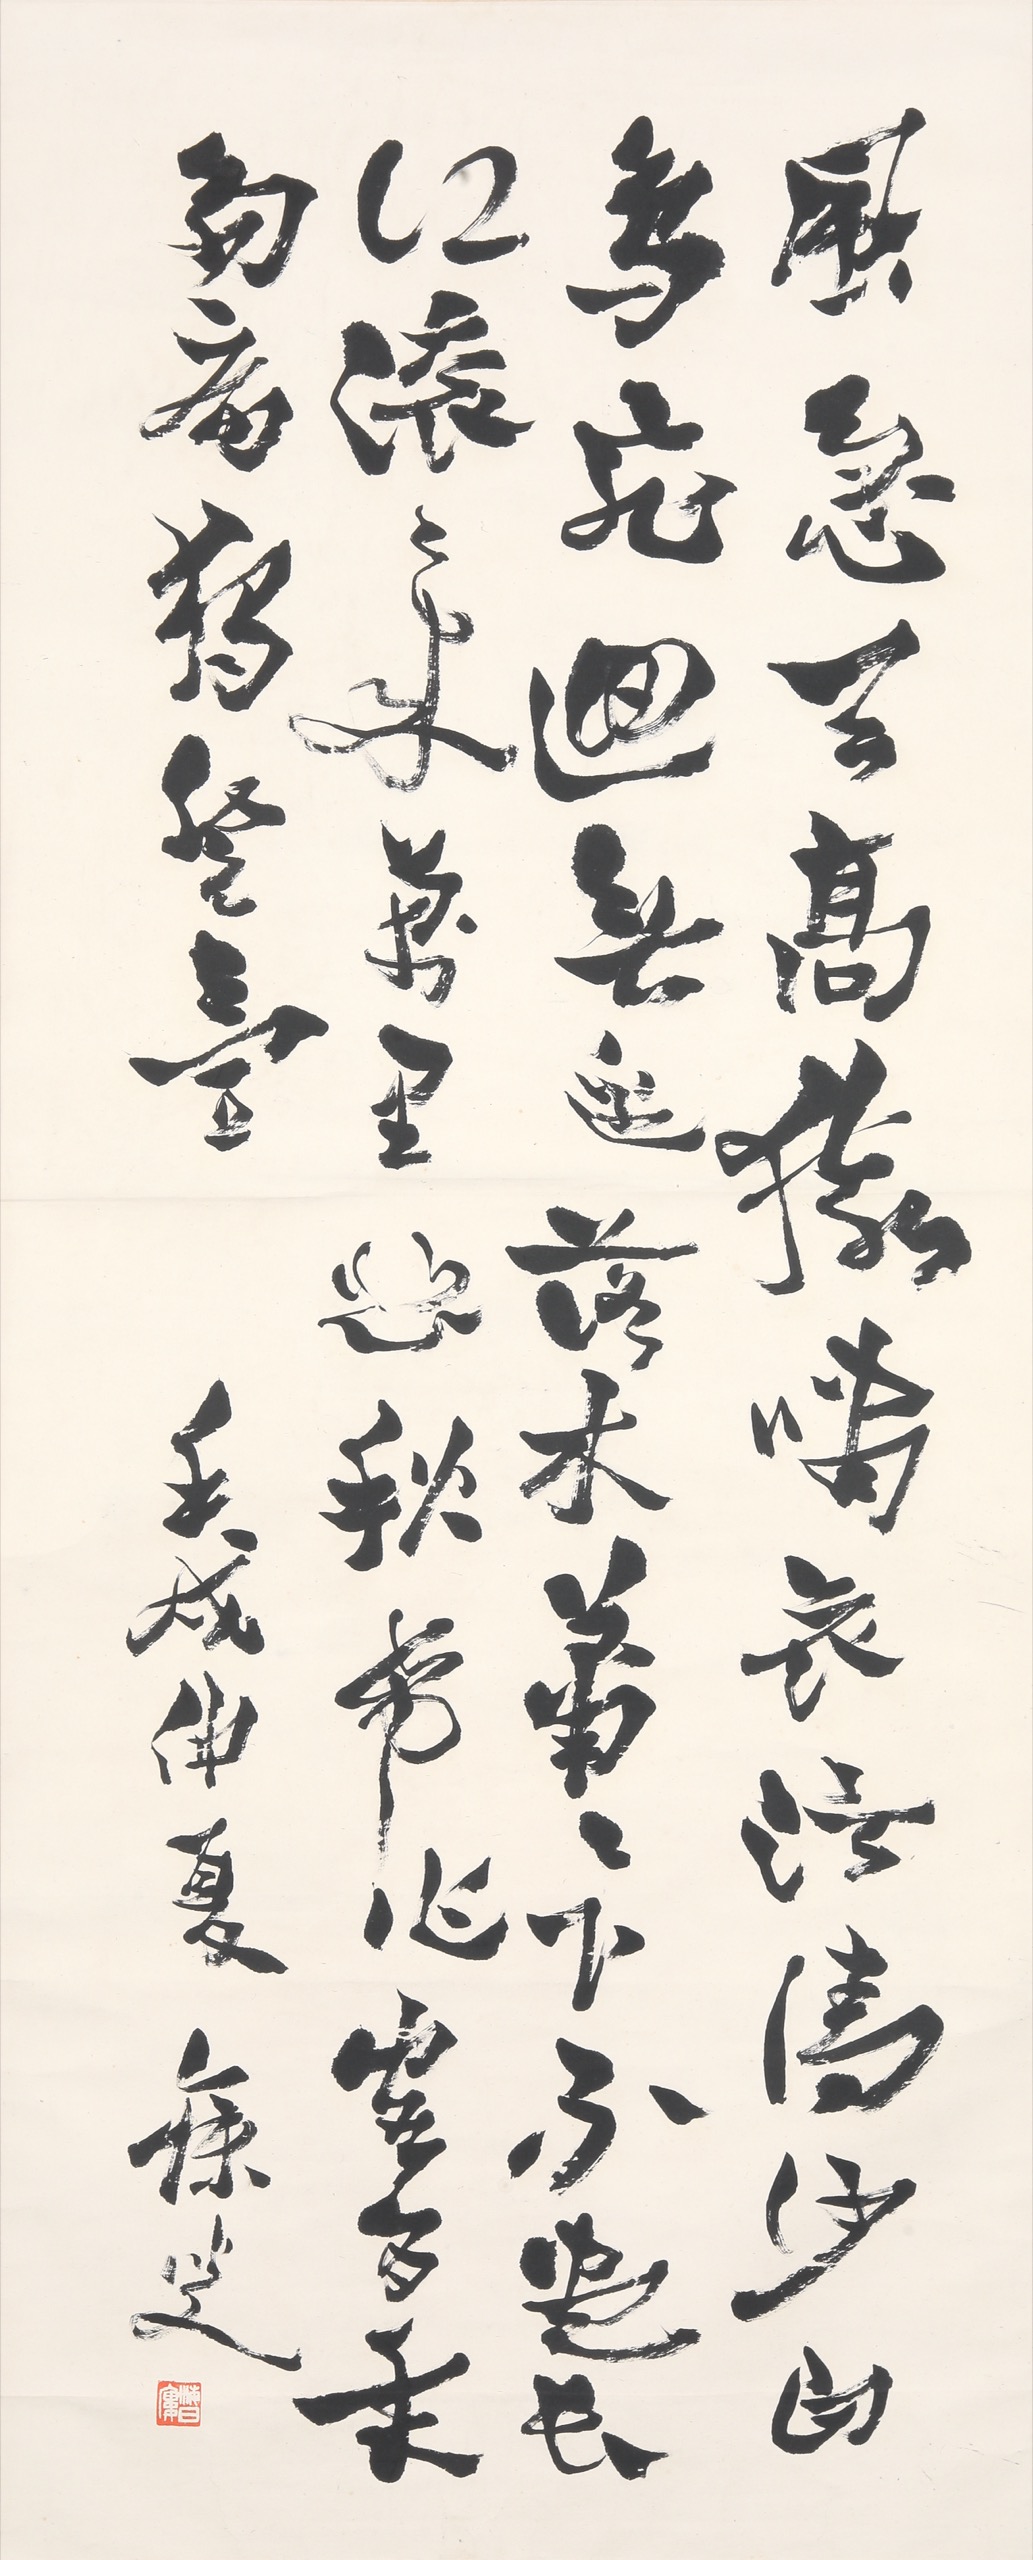 風急天高猿嘯哀渚清沙白
鳥飛迴無邊落木蕭〻下不盡長
江滾〻來萬里悲秋常作客百年
多病獨登臺
壬戌仲夏 叟